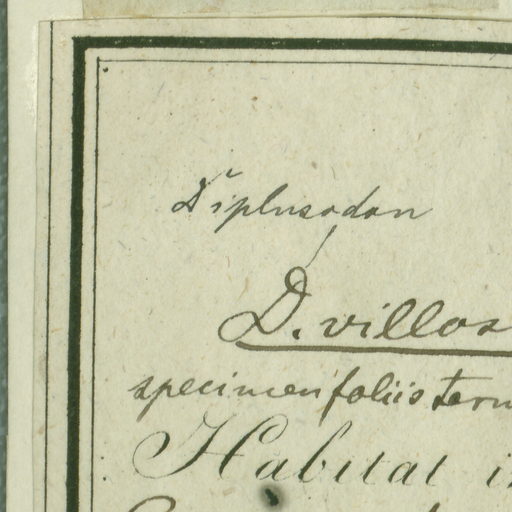 Diplusodon
D. villos
specimen foliis tern
Habitat i